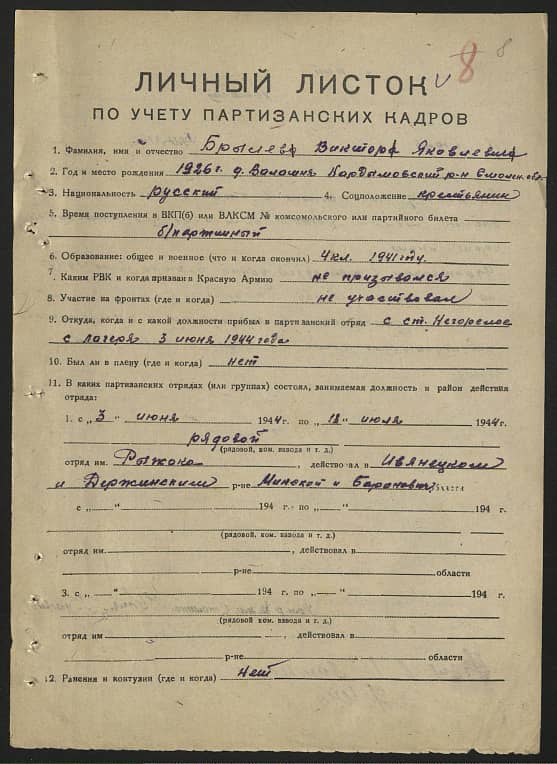 8
8
ЛИЧНЫЙ ЛИСТОК
ПО УЧЕТУ ПАРТИЗАНСКИХ КАДРОВ
1. Фамилия, имя и отчество Брылева Виктора Яковлевича
2. Год и место рождения 1926 г. д. Волошня Кардымовский р-н Смолен. обл.
3. Национальность русский 4. Соцположение крестьянин
5. Время поступления в ВКП(б) или ВЛКСМ № комсомольского или партийного билета
б/партийный
6. Образование: общее и военное (что и когда окончил) 4 кл. 1941 году.
7. Каким РВК и когда призван в Красную Армию не призывался
8. Участие на фронтах (где и когда) не участвовал
9. Откуда, когда и с какой должности прибыл в партизанский отряд с ст. Негорелое
с лагеря 3 июня 1944 года
10. Был ли в плену (где и когда) нет
11. В каких партизанских отрядах (или группах) состоял, занимаемая должность и район действия
отряда:
1. с „3" июня 1944 г. по „12" июля 1944 г.
рядовой
(рядовой, ком. взвода и т. д.)
отряд им. Рыжока, действовал в Ивянецком
и Держинским р-не Минской и Баранович области
с „ " 194 г. по „ " 194 г.
(рядовой, ком. взвода и т. д.)
отряд им. , действовал в
р-не области
3. с „ " 194 г. по „ " 194 г.
(рядовой, ком. взвода и т. д.)
отряд им , действовал в
р-не области
12. Ранения и контузии (где и когда) нет